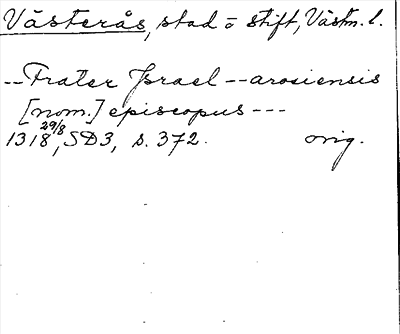 Västerås, stad o stift, Västm. l.
-- Frater Israel -- arosiensis
[nom.] episcopus ---
1318 29/8, SD3, s. 372. orig.